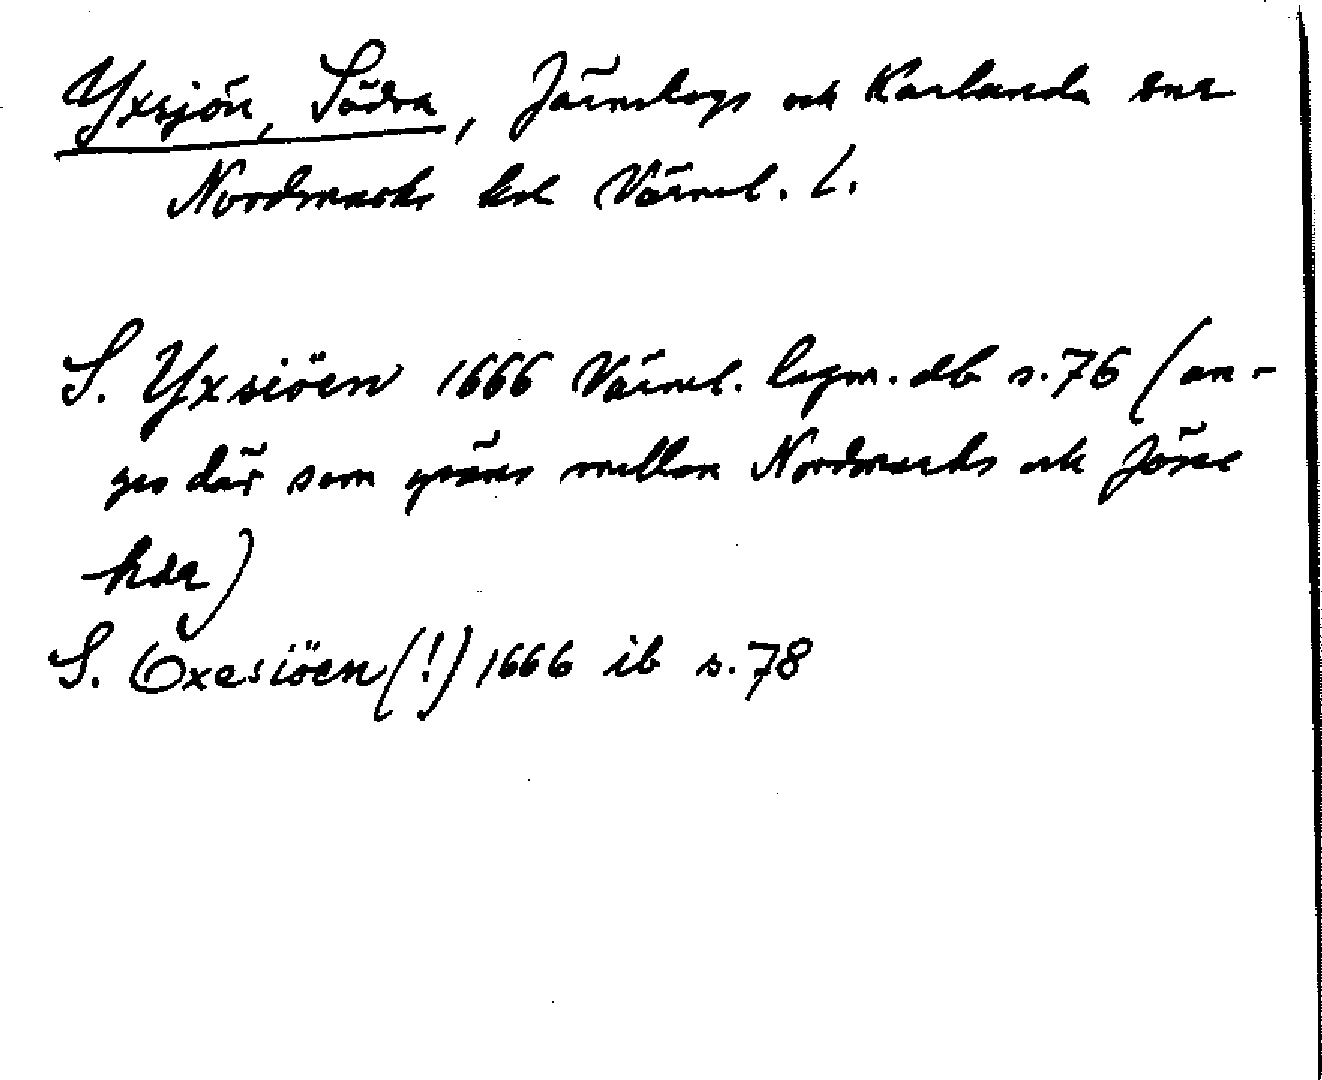 Yxsjön, Södra, Järnskogs och Karlanda snr
Nordmarks hd Värml. l.
S. Yxsiöen 1666 Värml. lagm. db s. 76 (an-
ges där som gräns mellan Nordmarks och Jösse
hdr)
S. Oxesiöen (!) 1666 ib s. 78